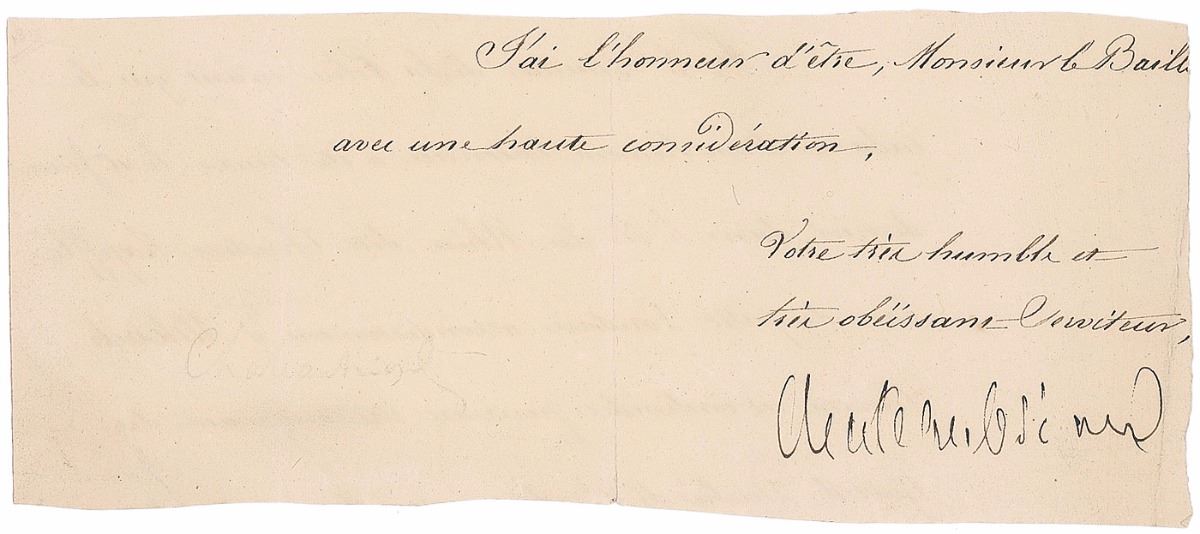 J'ai l'honneur d'être, Monsieur le Baill
avec une haute considération,
Votre très humble et
très obéissant Serviteur,
Chateaubriand